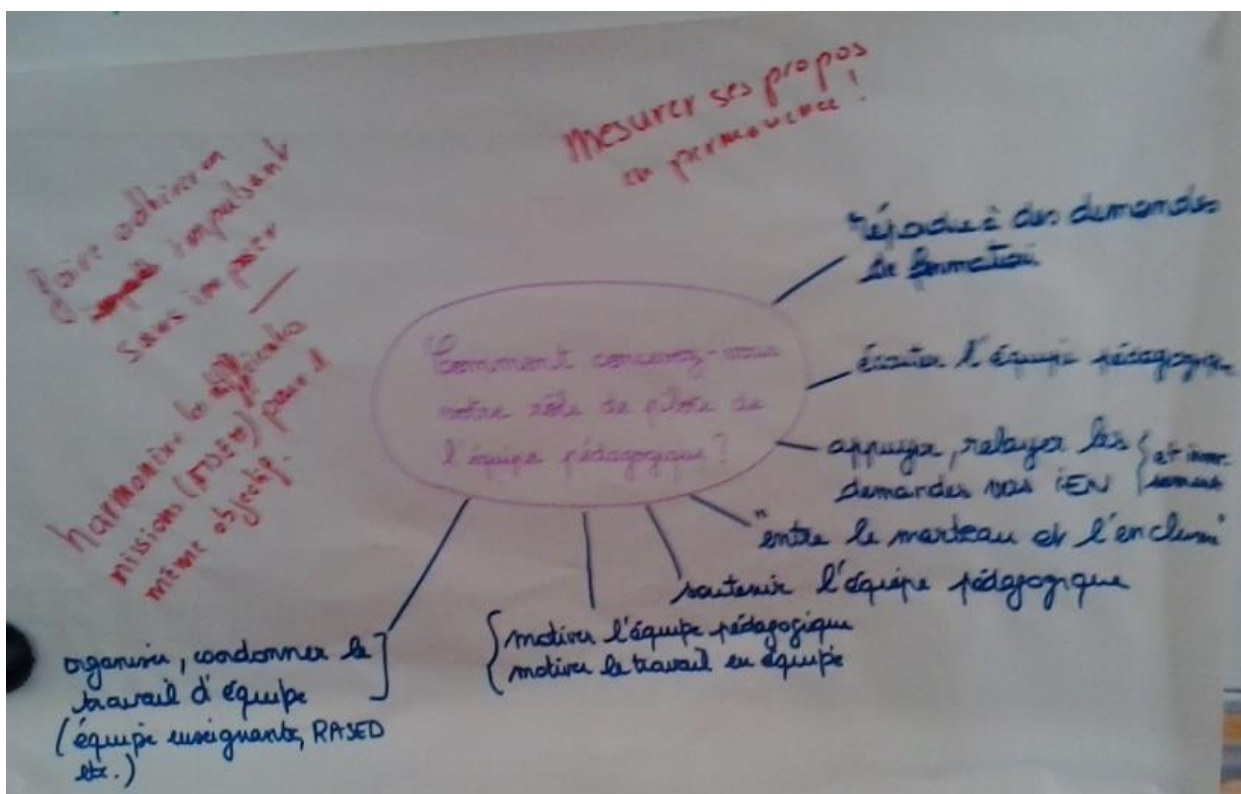 Mesurer ses propos
en permanence !
faire adhérer en
impulsant
sans imposer
harmoniser les
missions pour 1
même objectif.
Comment concevez-vous
votre rôle de pilote de
l'équipe pédagogique ?
répondre à des demandes
de formation
écouter l'équipe pédagogique
appuyer, relayer les
demandes vas iEN
{ et inver-
sement
"entre le marteau et l'enclume"
soutenir l'équipe pédagogique
{ motiver l'équipe pédagogique
motiver le travail en équipe
organiser, coordonner le
travail d'équipe
(équipe enseignante, RASED
etc.)